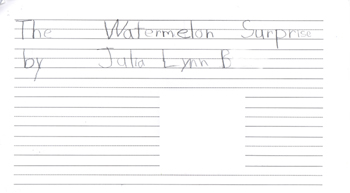 The Watermelon Surprise
by Julia Lynn B